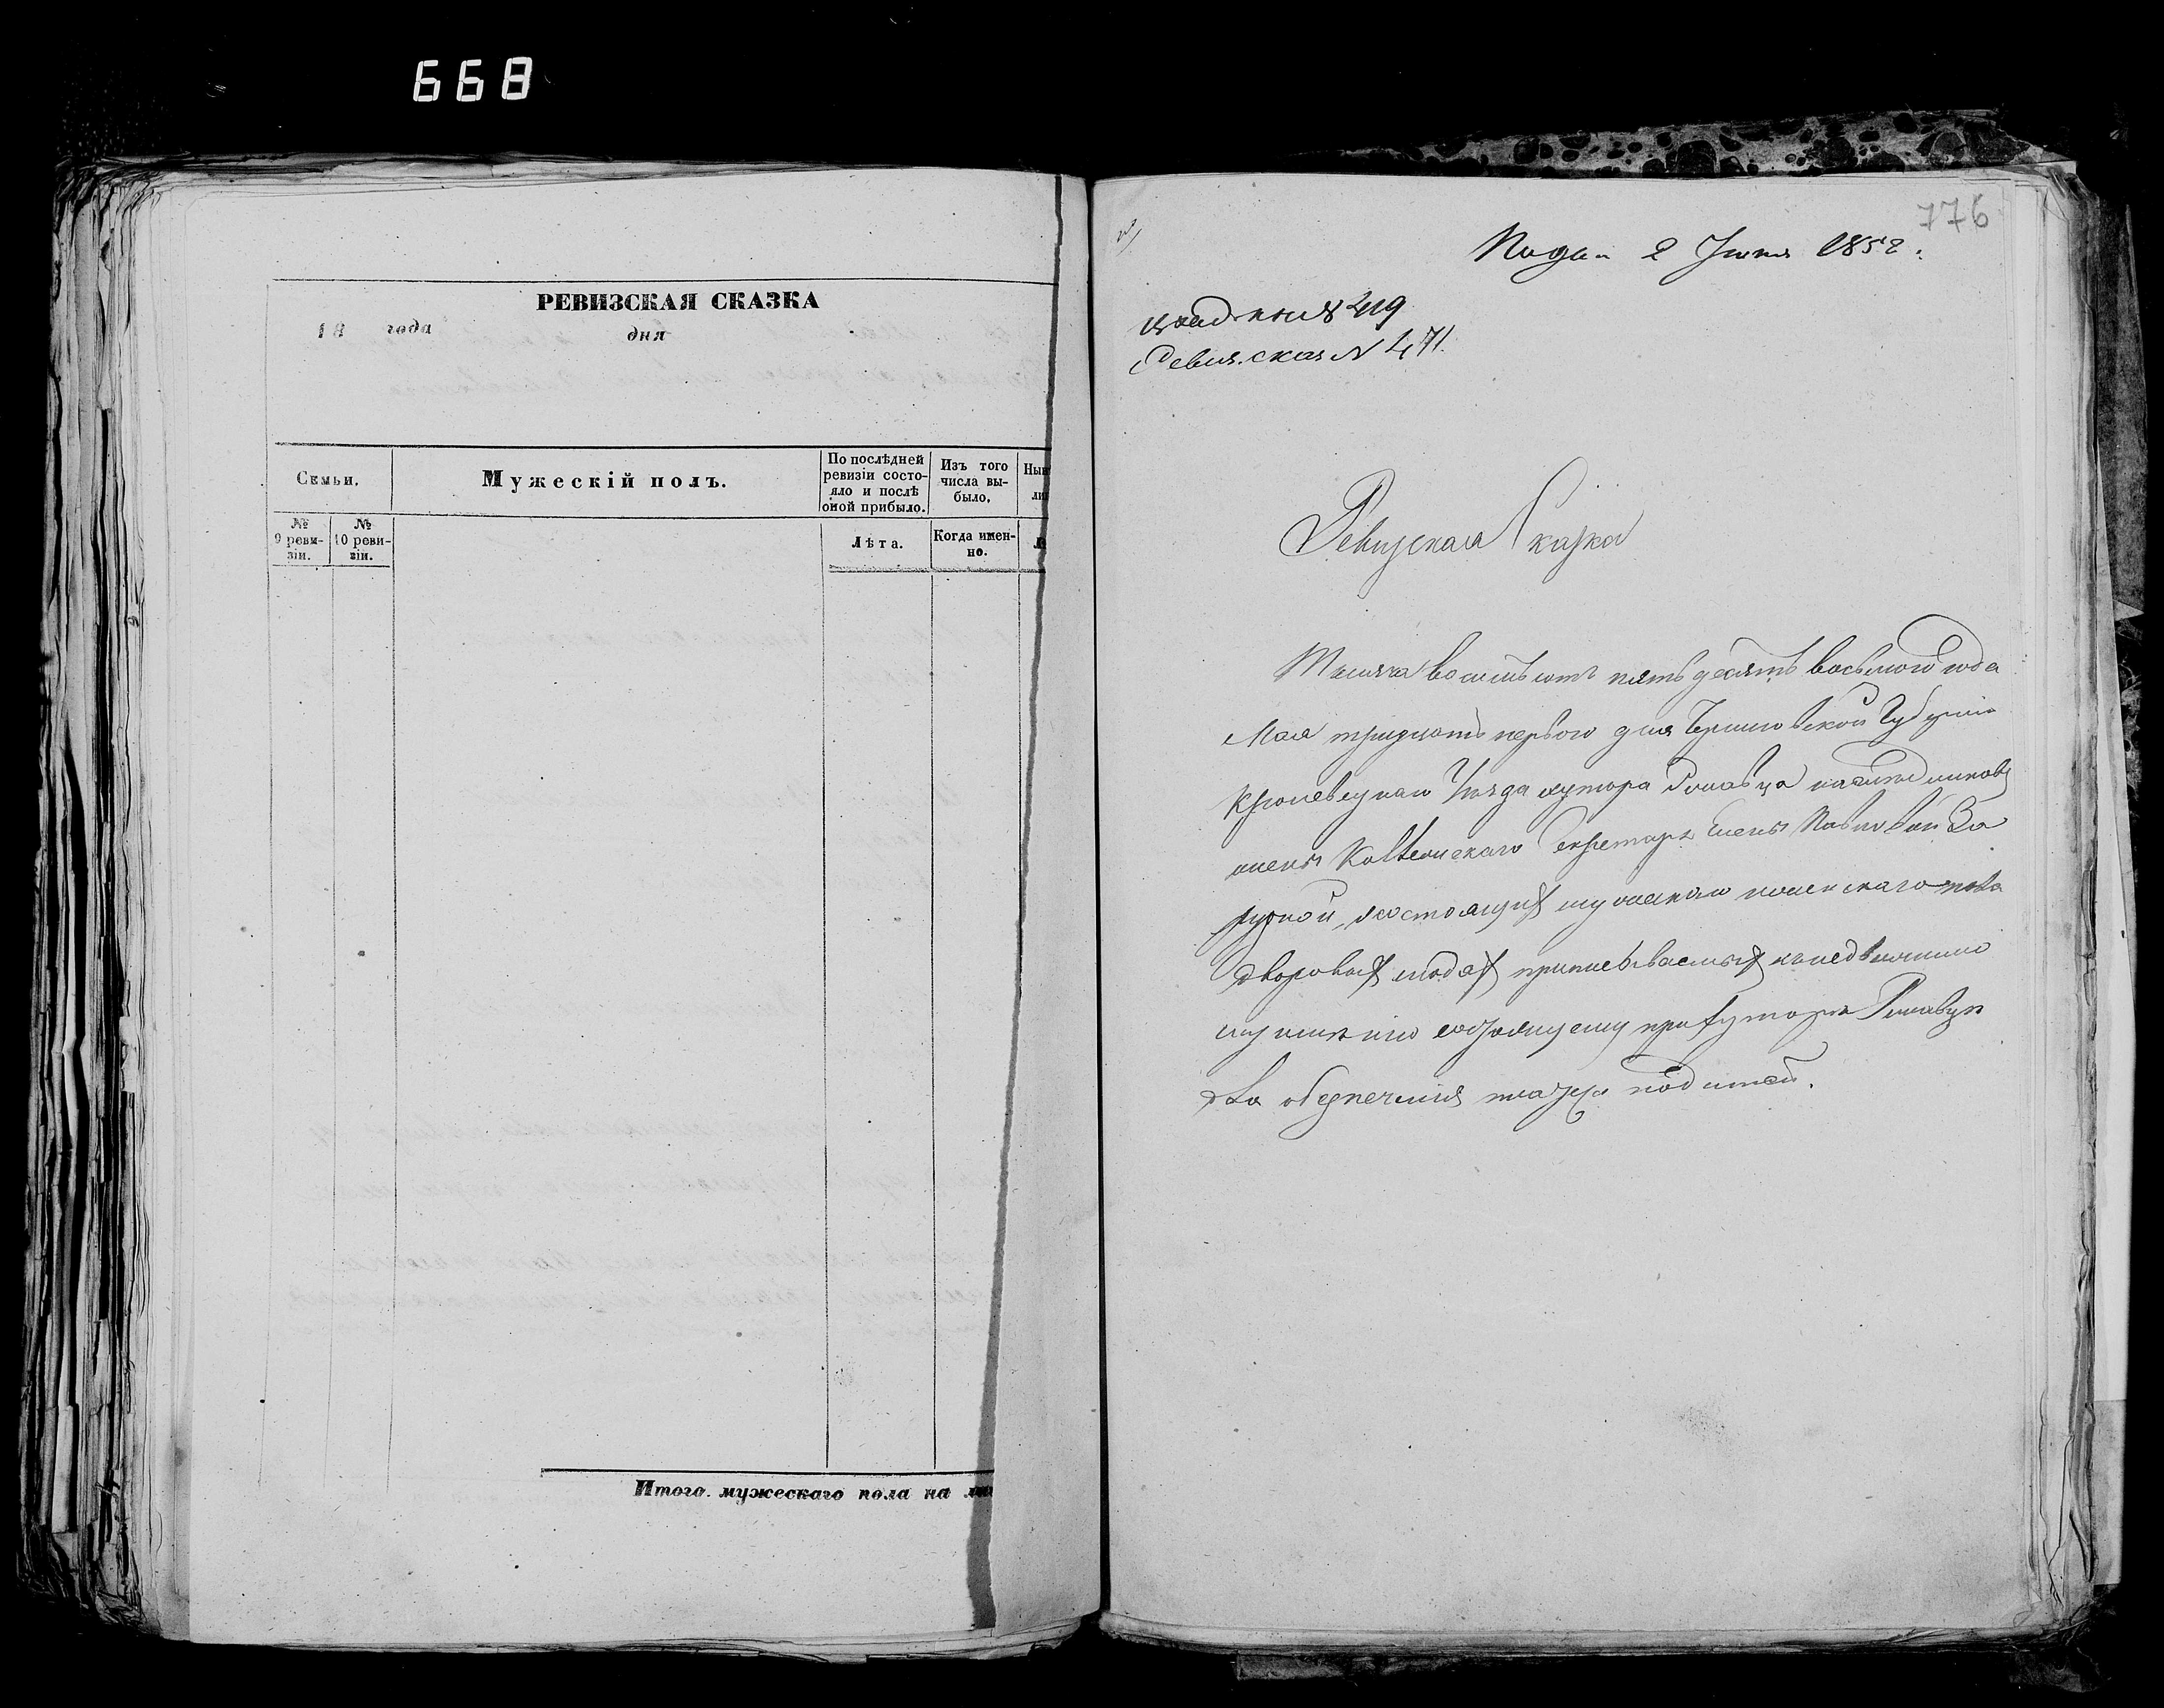 668
РЕВИЗСКАЯ СКАЗКА
18 года дня
Семьи.
Мужескій полъ.
По послѣдней ревизіи состояло и послѣ оной прибыло.
Изъ того числа выбыло.
№ 9 ревизіи.
№ 10 ревизіи.
Лѣта.
Когда именно.
Итого мужескаго пола на
776
Подан 2 Іюня 1858.
№ 419
Ревиз. сказ № 471.
Ревизская Сказка
Тысяча восемьсотъ пятьдесятъ восьмого года
Мая тридцать первого дня Черниговской Губерніи
Кролевецкаго Уѣзда хутора
Коллежскаго Секретаря Елены Павловой За
рудной, состоящихъ мужескаго женскаго пола
дворовыхъ людяхъ приписываемыхъ къ недвижимо
му имѣнію состоящему при хуторѣ
для обезпеченія платежа податей.